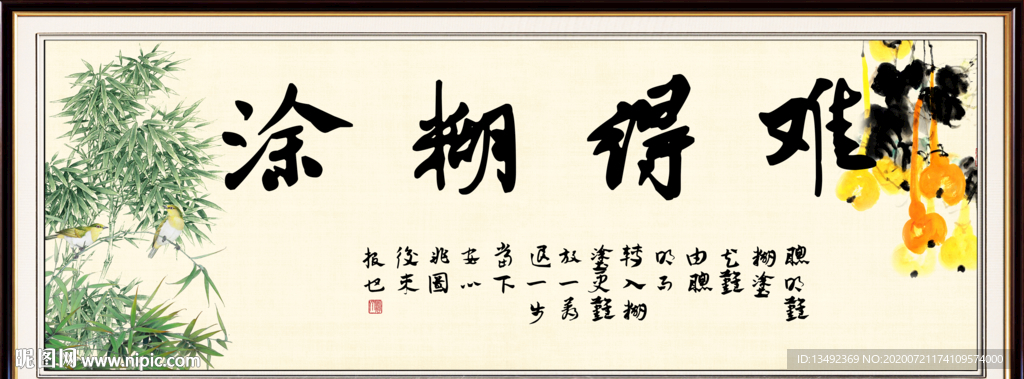 难得糊涂
聰明難
糊塗
尤難
由聰
明而
轉入糊
塗更難
放一着
退一步
當下
安心
非圖
後來
报也
昵图网 www.nipic.com
ID:13492369 NO:20200721174109574000